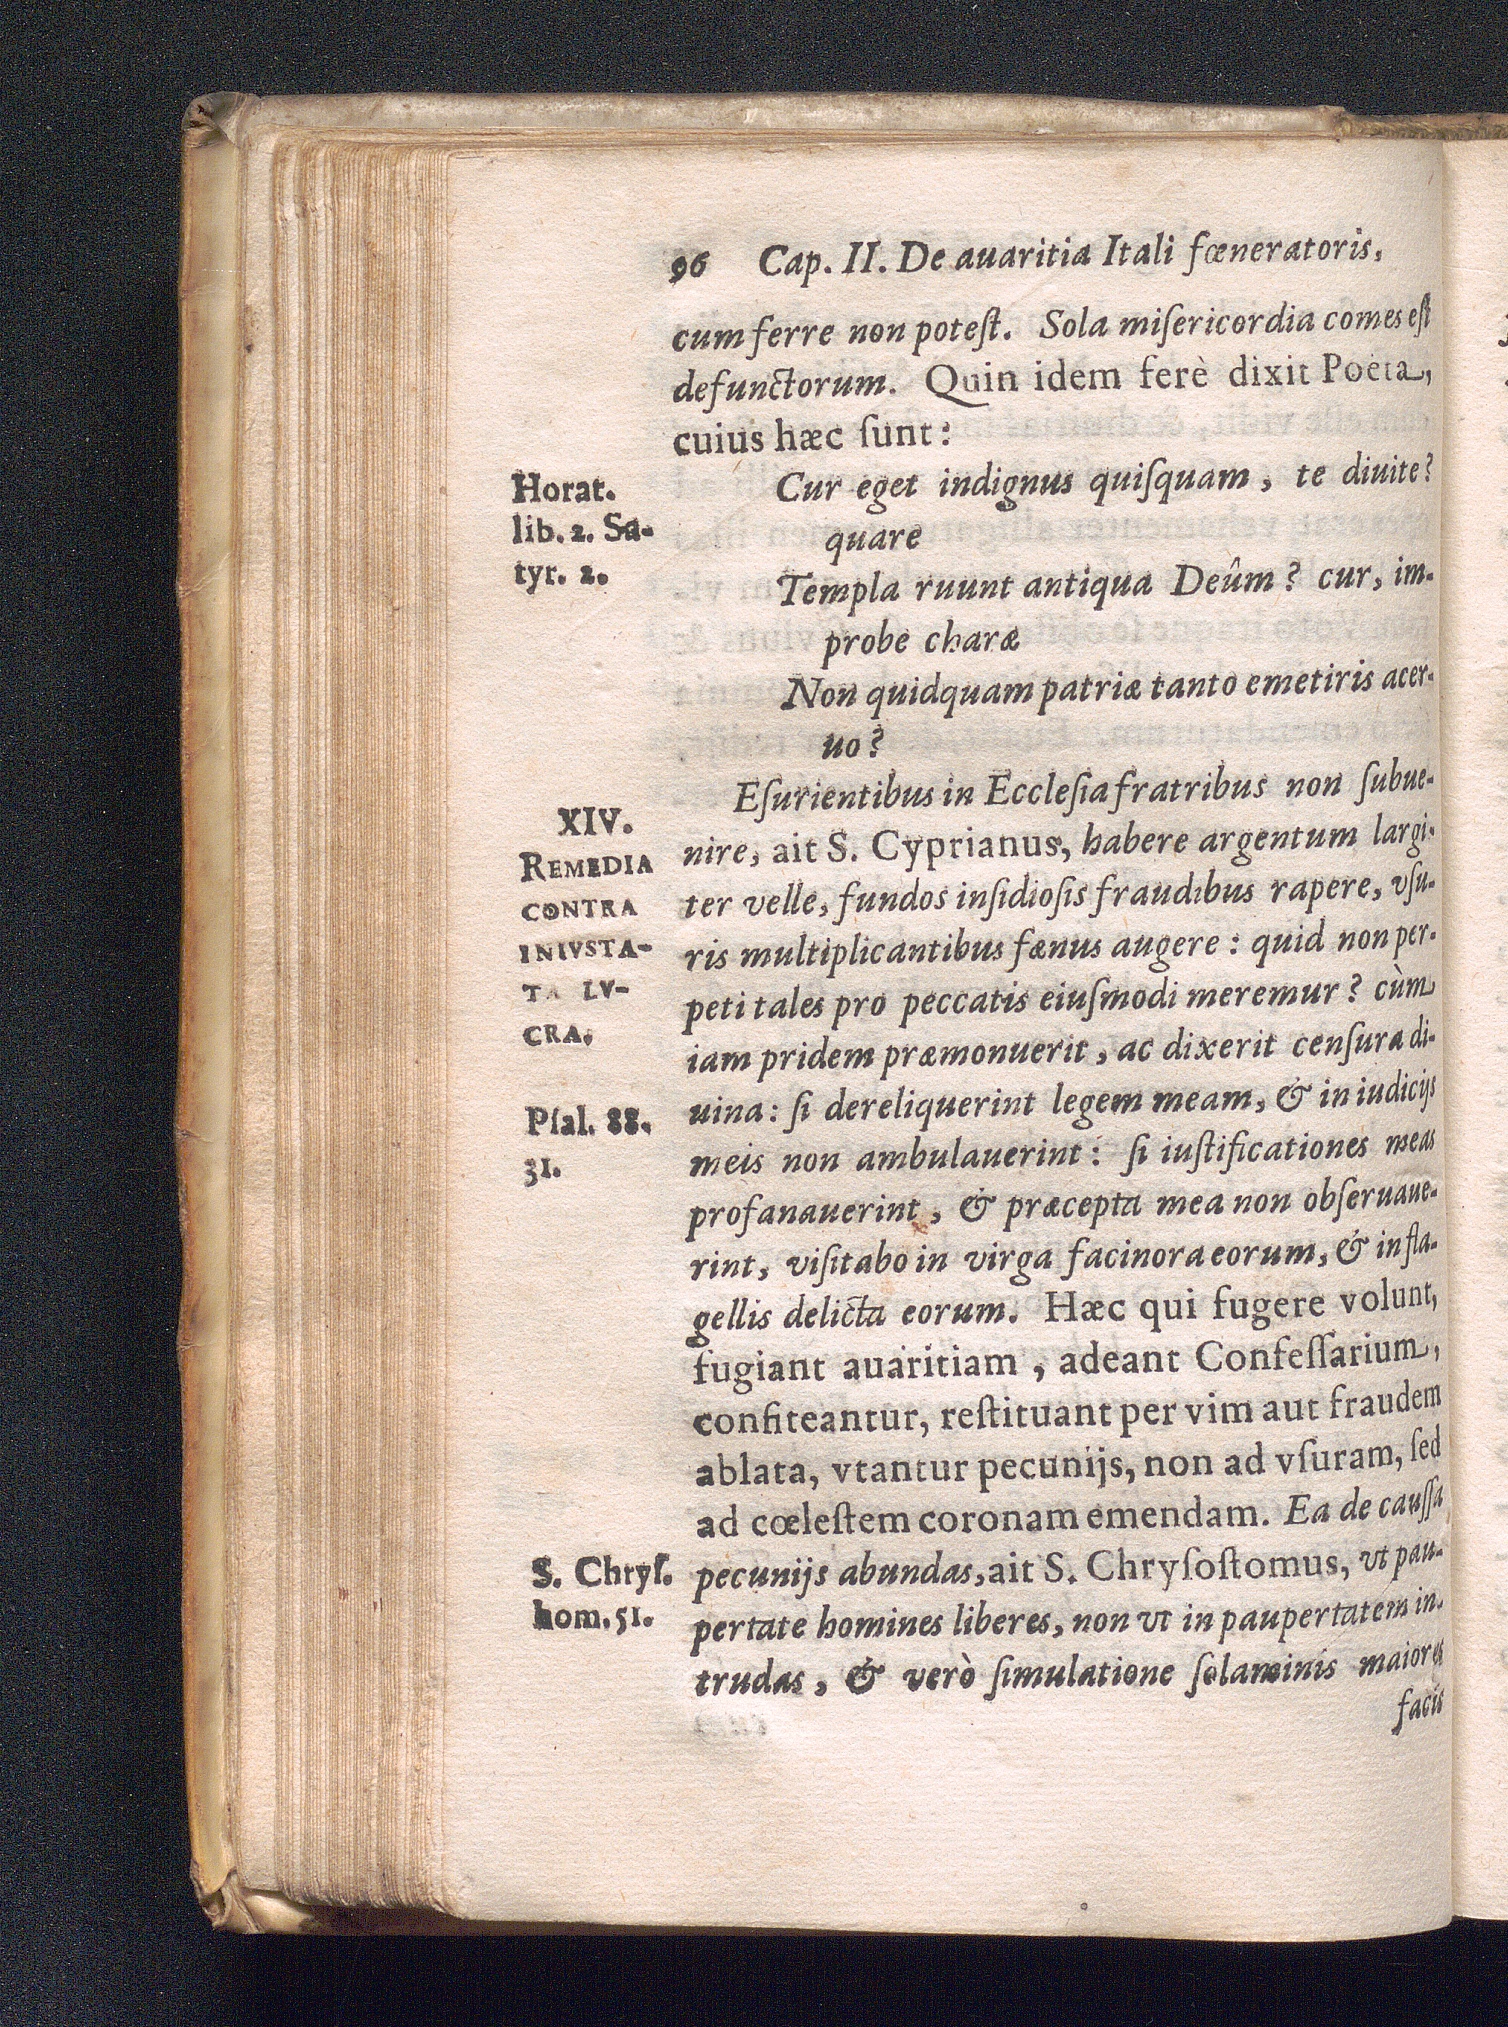 96 Cap. II. De auaritia Itali fœneratoris,
cum ferre non poteſt. Sola miſericordia comes eſt
defunctorum. Quin idem ferè dixit Poëta,
cuius hæc ſunt:
Horat.
lib. 2. Sa-
tyr. 2.
Cur eget indignus quiſquam, te diuite?
quare
Templa ruunt antiqua Deûm? cur, im-
probe charæ
Non quidquam patriæ tanto emetiris acer-
uo?
XIV.
REMEDIA
CONTRA
INIVSTA-
TA LV-
CRA.
Eſurientibus in Eccleſia fratribus non ſubue-
nire, ait S. Cyprianus, habere argentum largi-
ter velle, fundos inſidioſis fraudibus rapere, vſu-
ris multiplicantibus fænus augere: quid non per-
peti tales pro peccatis eiuſmodi meremur? cùm
iam pridem præmonuerit, ac dixerit cenſura di-
Pſal. 88.
31.
uina: ſi dereliquerint legem meam, & in iudicijs
meis non ambulauerint: ſi iuſtificationes meas
profanauerint, & præcepta mea non obſeruaue-
rint, viſitabo in virga facinora eorum, & in fla-
gellis delicta eorum. Hæc qui fugere volunt,
fugiant auaritiam, adeant Confeſſarium,
confiteantur, reſtituant per vim aut fraudem
ablata, vtantur pecunijs, non ad vſuram, ſed
ad cœleſtem coronam emendam. Ea de cauſſa
S. Chryſ.
hom. 51.
pecunijs abundas, ait S. Chryſoſtomus, vt pau-
pertate homines liberes, non vt in paupertatem in-
trudas, & verò ſimulatione ſolaminis maiores
facit